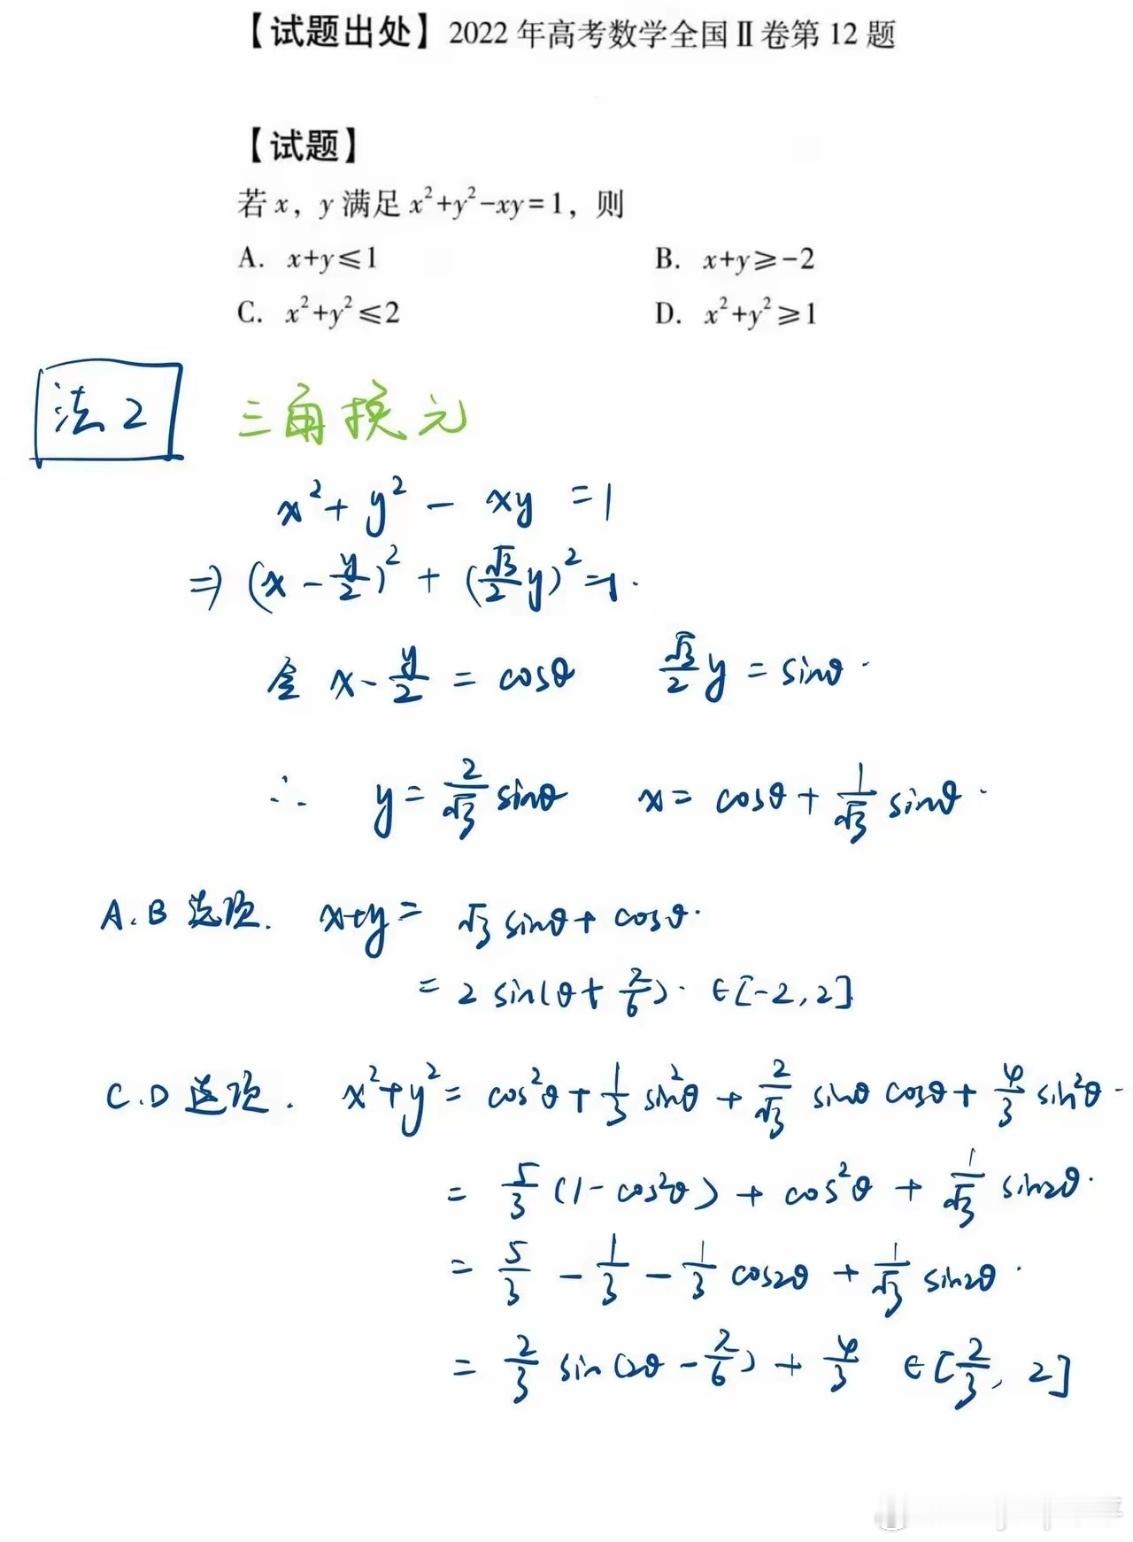 【试题出处】2022 年高考数学全国Ⅱ卷第 12 题
【试题】
若 x，y 满足 x²+y²−xy=1，则
A. x+y⩽1 B. x+y⩾−2
C. x²+y²⩽2 D. x²+y²⩾1
法2 三角换元
x² + y² − xy = 1
⇒ (x − y/2)² + (√3/2 y)² = 1.
令 x − y/2 = cosθ √3/2 y = sinθ.
∴ y = 2/√3 sinθ x = cosθ + 1/√3 sinθ.
A.B 选项. x+y = √3 sinθ + cosθ.
= 2 sin(θ + π/6). ∈[−2, 2]
C.D 选项. x²+y² = cos²θ + 1/3 sin²θ + 2/√3 sinθ cosθ + 4/3 sin²θ.
= 5/3 (1 − cos²θ) + cos²θ + 1/√3 sin2θ.
= 5/3 − 1/3 − 1/3 cos2θ + 1/√3 sin2θ.
= 2/3 sin(2θ − π/6) + 4/3 ∈[2/3, 2]